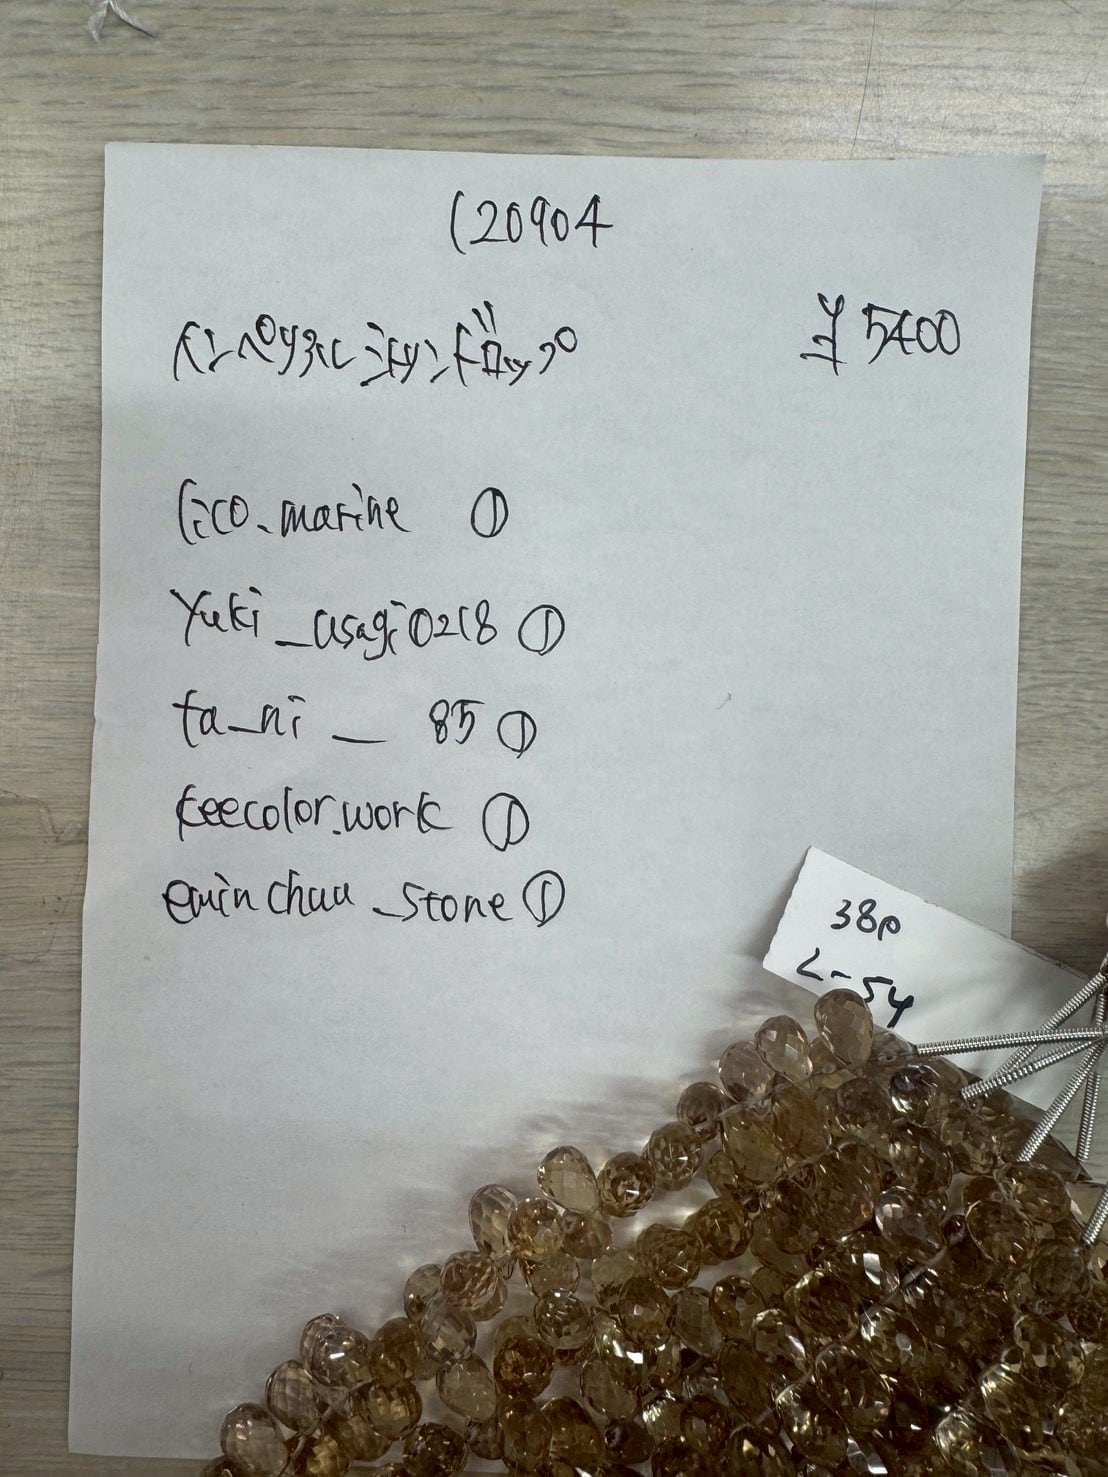 120904
インペリアルシャンドロップ ¥5400
lico_marine ①
yuki_usagi0218 ①
ta_ni_85 ①
keecolor.work ①
eminchuu_stone ①
38p
L-54